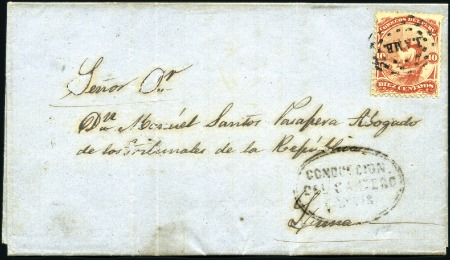 CORREOS DEL PERU
10 10
DIEZ CENTAVOS
Señor Dr
Dn Manuel Santos Pasapera Abogado
de los Tribunales de la República
CONDUCCION
GRATIS
Lima